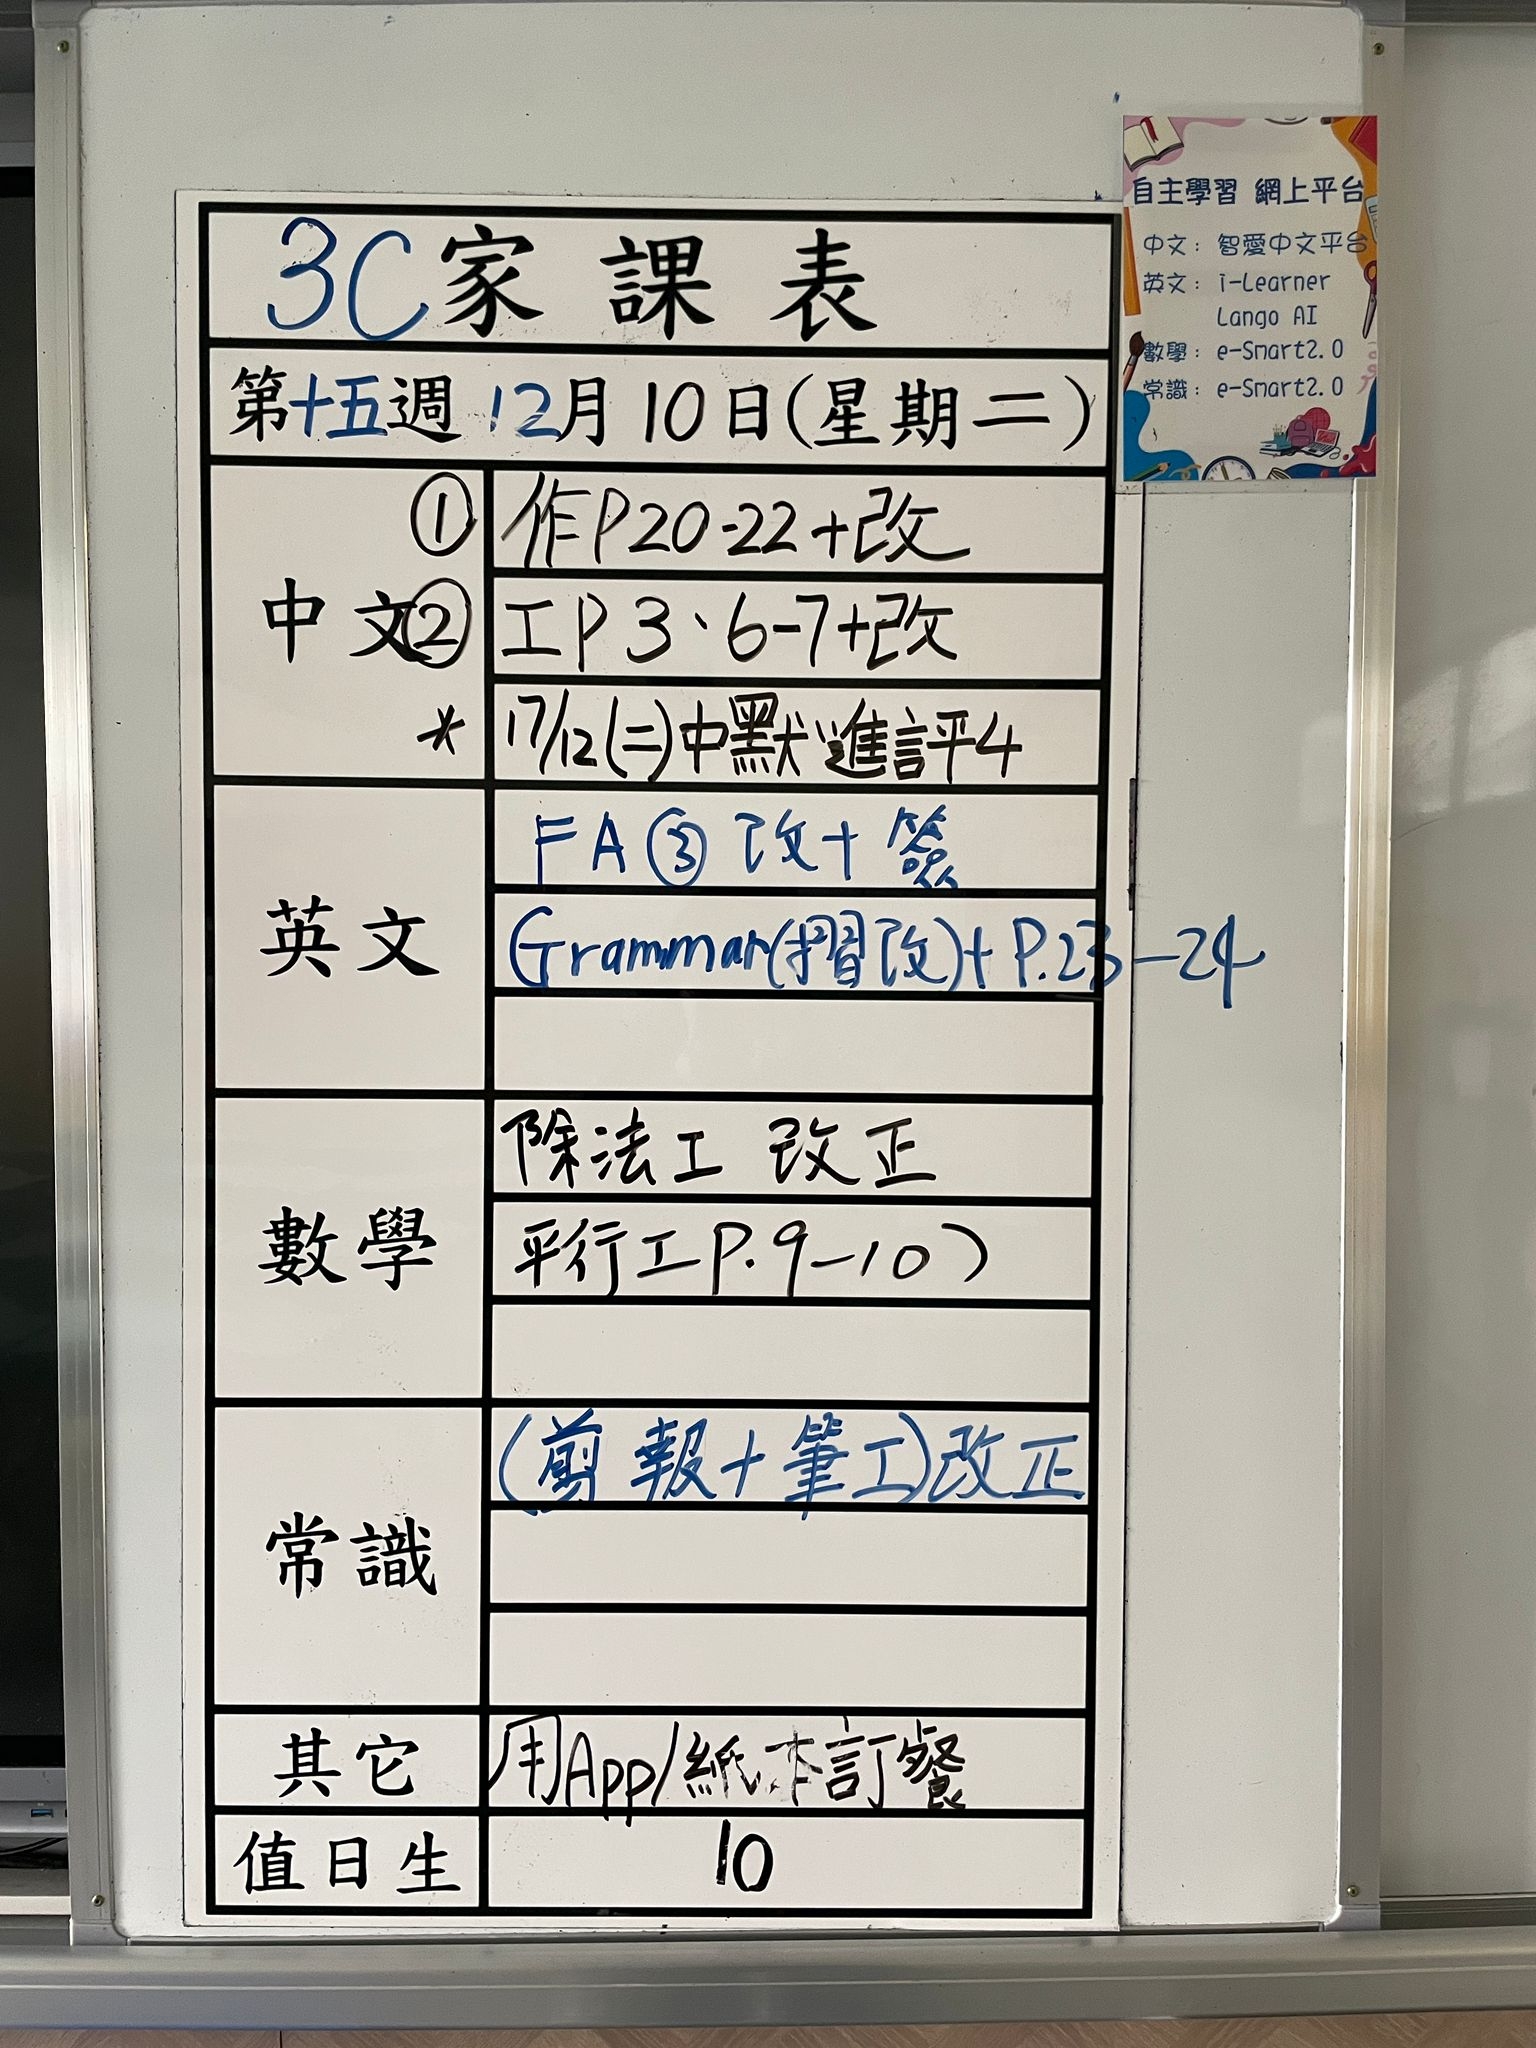 3C家課表
第十五週 12月10日(星期二)
中文
① 作P20-22+改
② 工P3、6-7+改
* 17/12(二)中默進評4
英文
FA③改+簽
Grammar(摺改)+P.23-24
數學
除法工 改正
平行工P.9-10)
常識
(剪報+筆工)改正
其它
用App/紙本訂餐
值日生
10
自主學習 網上平台
中文：智愛中文平台
英文：i-Learner
Lango AI
數學：e-Smart2.0
常識：e-Smart2.0